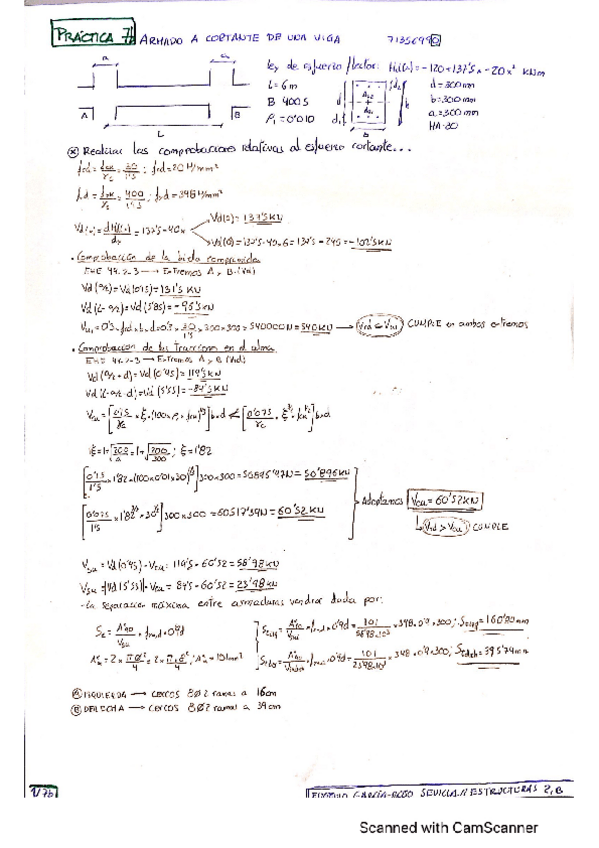 PRÁCTICA 7b ARMADO A CORTANTE DE UNA VIGA 71356990
a a
ley de esfuerzo flector: Md(x)=-120+137'5x-20x² kNm
L=6m
B 400S
ρ₁=0'010
d=300mm
b=300mm
a=300mm
HA-30
A B
L
b
⊗ Realizar las comprobaciones relativas al esfuerzo cortante...
fcd = fck/γc = 30/1'5 ; fcd=20 N/mm²
fyd = fyk/γs = 400/1'15 ; fyd=348 N/mm²
Vd(x)= dM(x)/dx = 137'5-40x
Vd(0)=137'5KN
Vd(6)=137'5-40·6=137'5-240=-102'5KN
· Comprobación de la biela comprimida
EHE 44.2.3 → Extremos A y B
Vd(a/2)=Vd(0'15)=131'5 KN
Vd(L-a/2)=Vd(5'85)=-
Vu1=0'3·fcd·b·d=0'3×30/1'5×300×300=540000N=540KN → Vrd<Vu1 CUMPLE en ambos extremos
· Comprobación de las tracciones en el alma
EHE 44.2.3 → Extremos A y B (Vd)
Vd(a/2+d)=Vd(0'45)=119'5KN
Vd(L-a/2-d)=Vd(5'55)=-84'5KN
Vcu=[0'15/γc × ξ·(100×ρ₁×fck)^1/3]b×d ≮ [0'075/γc · ξ^3/2 · fck^1/2]b×d
ξ=1+√200/d=1+√200/300 ; ξ=1'82
[0'15/1'5×1'82×(100×0'01×30)^1/3]300×300=50895'47N=50'896KN
[0'075/1'5×1'82^3/2×30^1/2]300×300=60517'39N=60'52KN
Adoptamos Vcu=60'52KN
Vrd>Vcu CUMPLE
Vsu=Vd(0'45)-Vcu=119'5-60'52=58'98KN
Vsu=|Vd(5'55)|-Vcu=84'5-60'52=23'98KN
-la separación máxima entre armaduras vendrá dada por:
St=A'90/Vsu·fyd·0'9d
A'90=2×πØ²/4=2×π·8²/4 ; A'90=101mm²
St izq=A'90/Vsu×fyd×0'9d=101/5898·10³×348·0'9×300; St izq=160'80mm
×348·0'9×300; St dch=395'74mm
Ⓐ IZQUIERDA → CERCOS 8Ø2 ramas a 16cm
Ⓑ DERECHA → CERCOS 8Ø2 ramas a 39cm
1/7b
GARCÍA-
SEVILLA // ESTRUCTURAS 2, B
Scanned with CamScanner